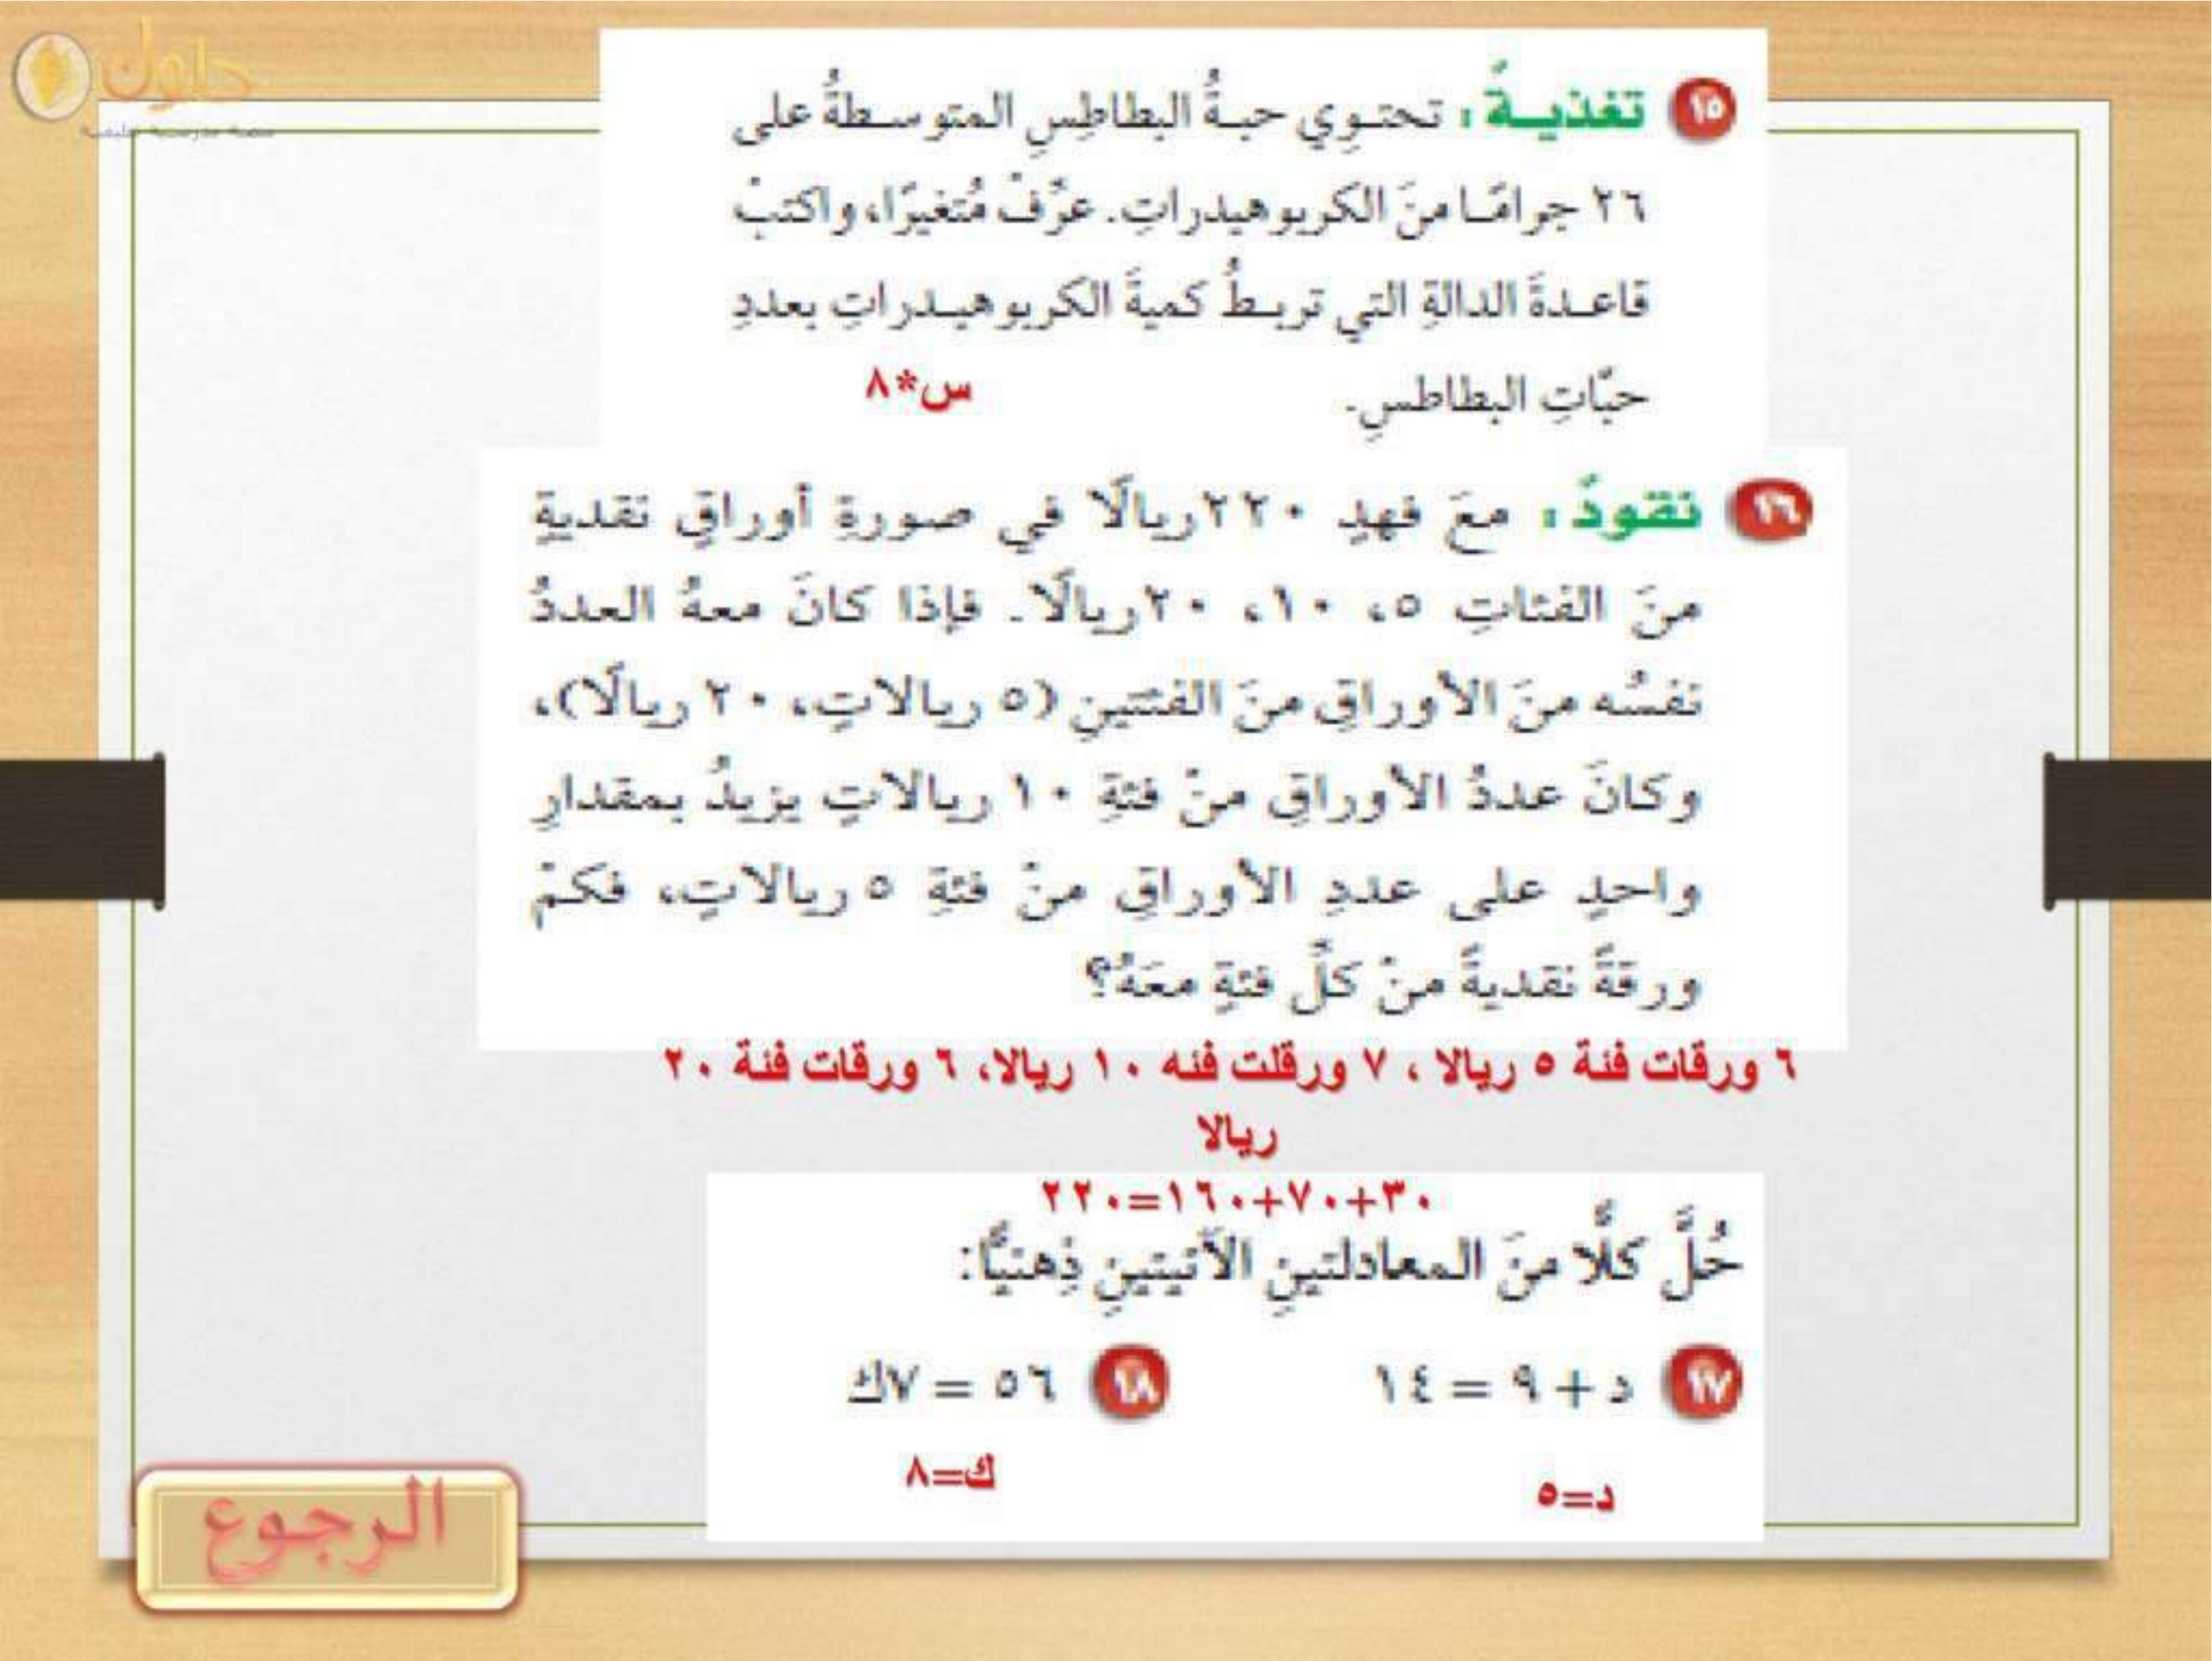 حلول
١٥ تغذيةٌ: تحتوِي حبةُ البطاطِسِ المتوسطةُ على
٢٦ جرامًا منَ الكربوهيدراتِ. عرِّفْ مُتغيرًا، واكتبْ
قاعدةَ الدالةِ التي تربطُ كميةَ الكربوهيدراتِ بعددِ
حبَّاتِ البطاطسِ.
س*٨
١٦ نقودٌ: معَ فهدٍ ٢٢٠ ريالًا في صورةِ أوراقٍ نقديةٍ
منَ الفئاتِ ٥، ١٠، ٢٠ ريالًا. فإذا كانَ معهُ العددُ
نفسُه منَ الأوراقِ منَ الفئتينِ (٥ ريالاتٍ، ٢٠ ريالًا)،
وكانَ عددُ الأوراقِ منْ فئةِ ١٠ ريالاتٍ يزيدُ بمقدارِ
واحدٍ على عددِ الأوراقِ منْ فئةِ ٥ ريالاتٍ، فكمْ
ورقةً نقديةً منْ كلِّ فئةٍ معَهُ؟
٦ ورقات فئة ٥ ريالا ، ٧ ورقلت فئه ١٠ ريالا، ٦ ورقات فئة ٢٠
ريالا
٣٠+٧٠+١٦٠=٢٢٠
حُلَّ كلًّا منَ المعادلتينِ الآتيتينِ ذِهنيًّا:
١٧ د + ٩ = ١٤
١٨ ٥٦ = ٧ك
د=٥
ك=٨
الرجوع